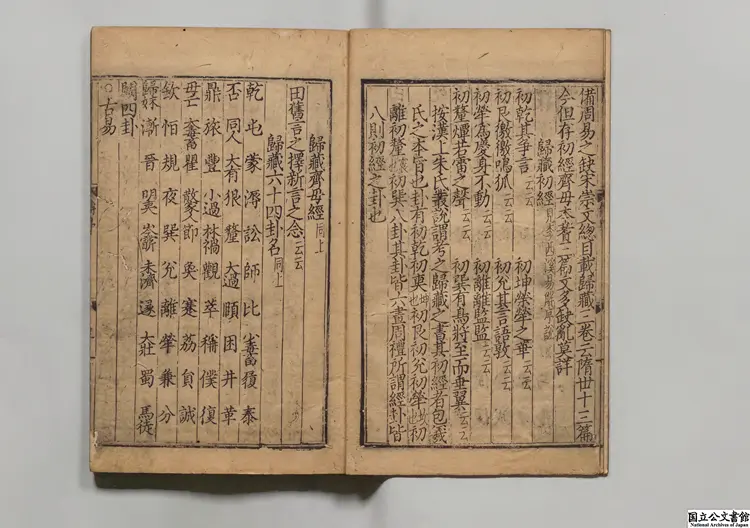 備周易之缺宋崇文總目載歸藏三卷云隋世十三篇
今但存初經齊母本蓍三篇文多缺亂莫詳
歸藏初經 見李西溪易
初乾其爭言云云 初坤榮犖之華云云
初艮徼徼鳴狐云云 初兌其言語敦云云
初犖為慶身不動云云 初離離監監云云
初釐燂若雷之聲云云 初巽有鳥將至而垂翼云云
按漢上朱氏叢說謂考之歸藏之書其初經者包羲
氏之本旨也卦有初乾初奭坤也初艮初兌初犖坎也初
離初釐震也初巽八卦其卦皆六畫周禮所謂經卦皆
八則初經之卦也
歸藏齊母經同上
田舊言之擇新言之念云云
歸藏六十四卦名同上
乾 屯 蒙 溽 訟 師 比 小毒畜 履 泰
否 同人 大有 狠 釐 大過 頤 困 井 革
鼎 旅 豐 小過 林禍 觀 萃 稱 僕 復
毋亡 大毒畜 瞿 散家人 節 奐 蹇 荔 員 諴
欽 恒 規 夜 巽 兌 離 犖 兼 分
歸妹 漸 晉 明夷 岑䨏 未濟 遯 大壯 蜀 馬徒
闕四卦
○古易
国立公文書館
National Archives of Japan